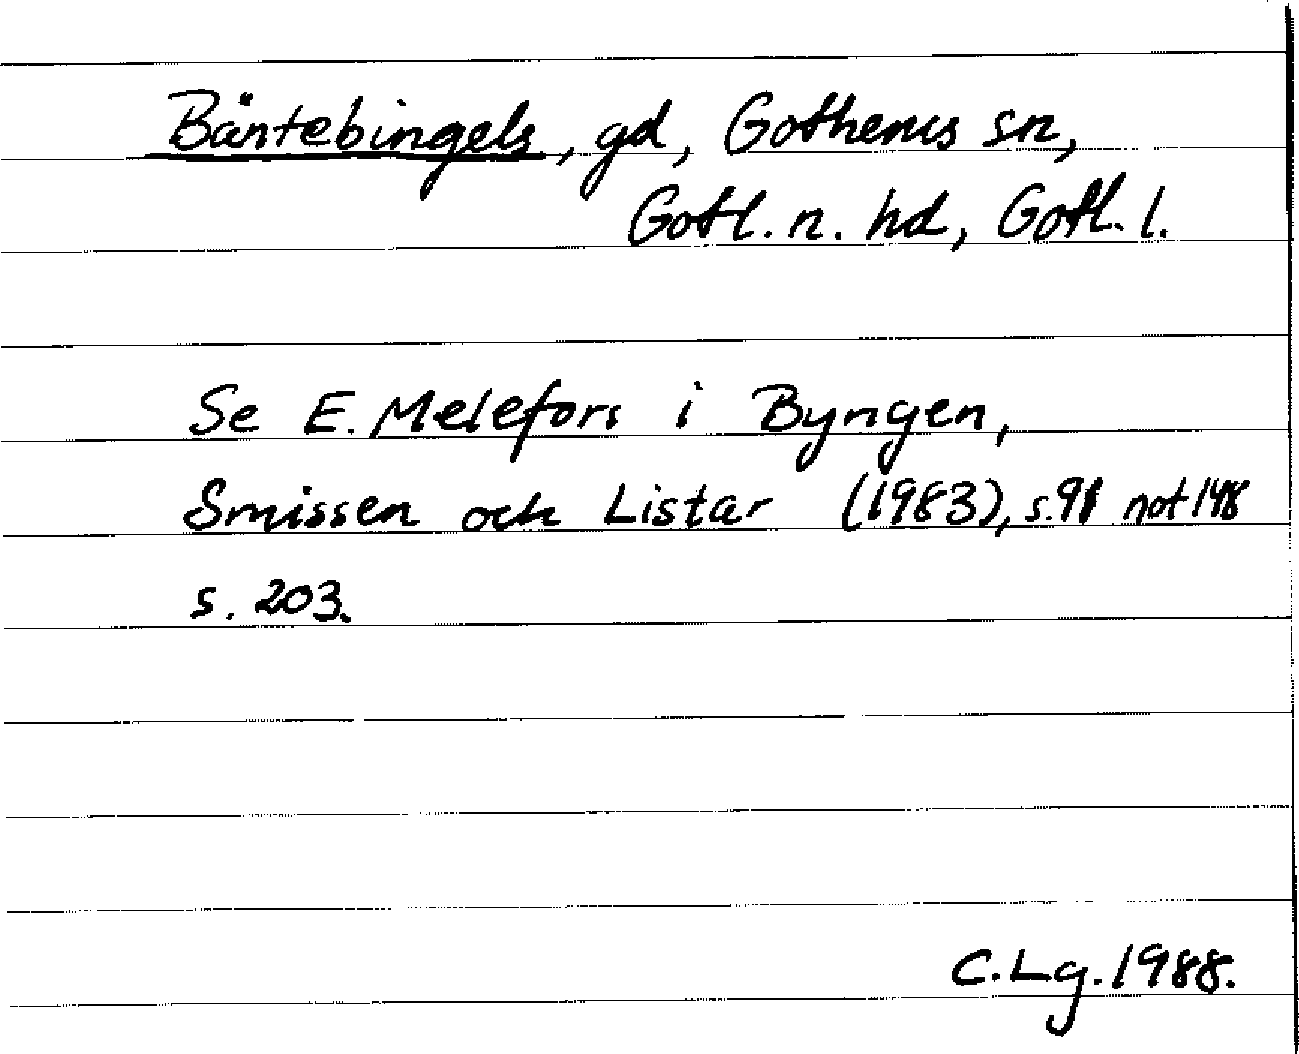 Bäntebingels, gd, Gothems sn,
Gotl. n. hd, Gotl. l.
Se E. Melefors i Byngen,
Smissen och Listar (1983), s. not 148
s. 203.
C.Lg. 1988.